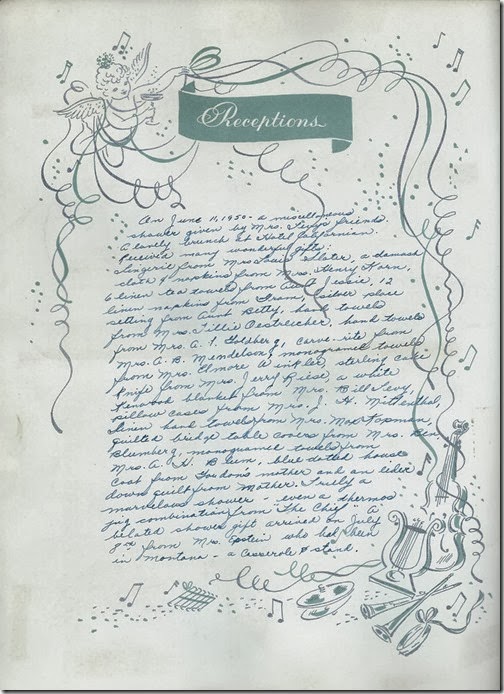 Receptions
On June 11, 1950 - a miscellaneous
shower given by Mrs. Levy's friends.
A lovely brunch at Hotel Californian.
Received many wonderful gifts:
Lingerie from Mrs Louis Slater, a damask
cloth & napkins from Mrs. Henry Horn,
6 linen tea towels from Aunt Jessie, 12
linen napkins from Gram, silver place
setting from Aunt Betty, hand towels
from Mrs. Tillie Oestreicher, hand towels
from Mrs. A. I. Goldberg, carve-rite from
Mrs. A. B. Mendelson, monogramed towels
from Mrs. Elmore Winkler, sterling cake
knife from Mrs. Jerry Riese, a white
Kenwood blanket from Mrs. Bill Levy,
pillow cases from Mrs. J. H. Mittenthal,
linen hand towels from Mrs. Max
quilted bridge table covers from Mrs. Ben
Blumberg, monogramed towels from
Mrs. A. H. Blum, blue dotted house
coat from Gordon's mother and an eider
down quilt from Mother. Truly a
marvelous shower - even a thermos
jug combination from "The Chief". A
belated shower gift arrived on July
8th from Mrs. Epstein who had been
in Montana - a casserole & stand.